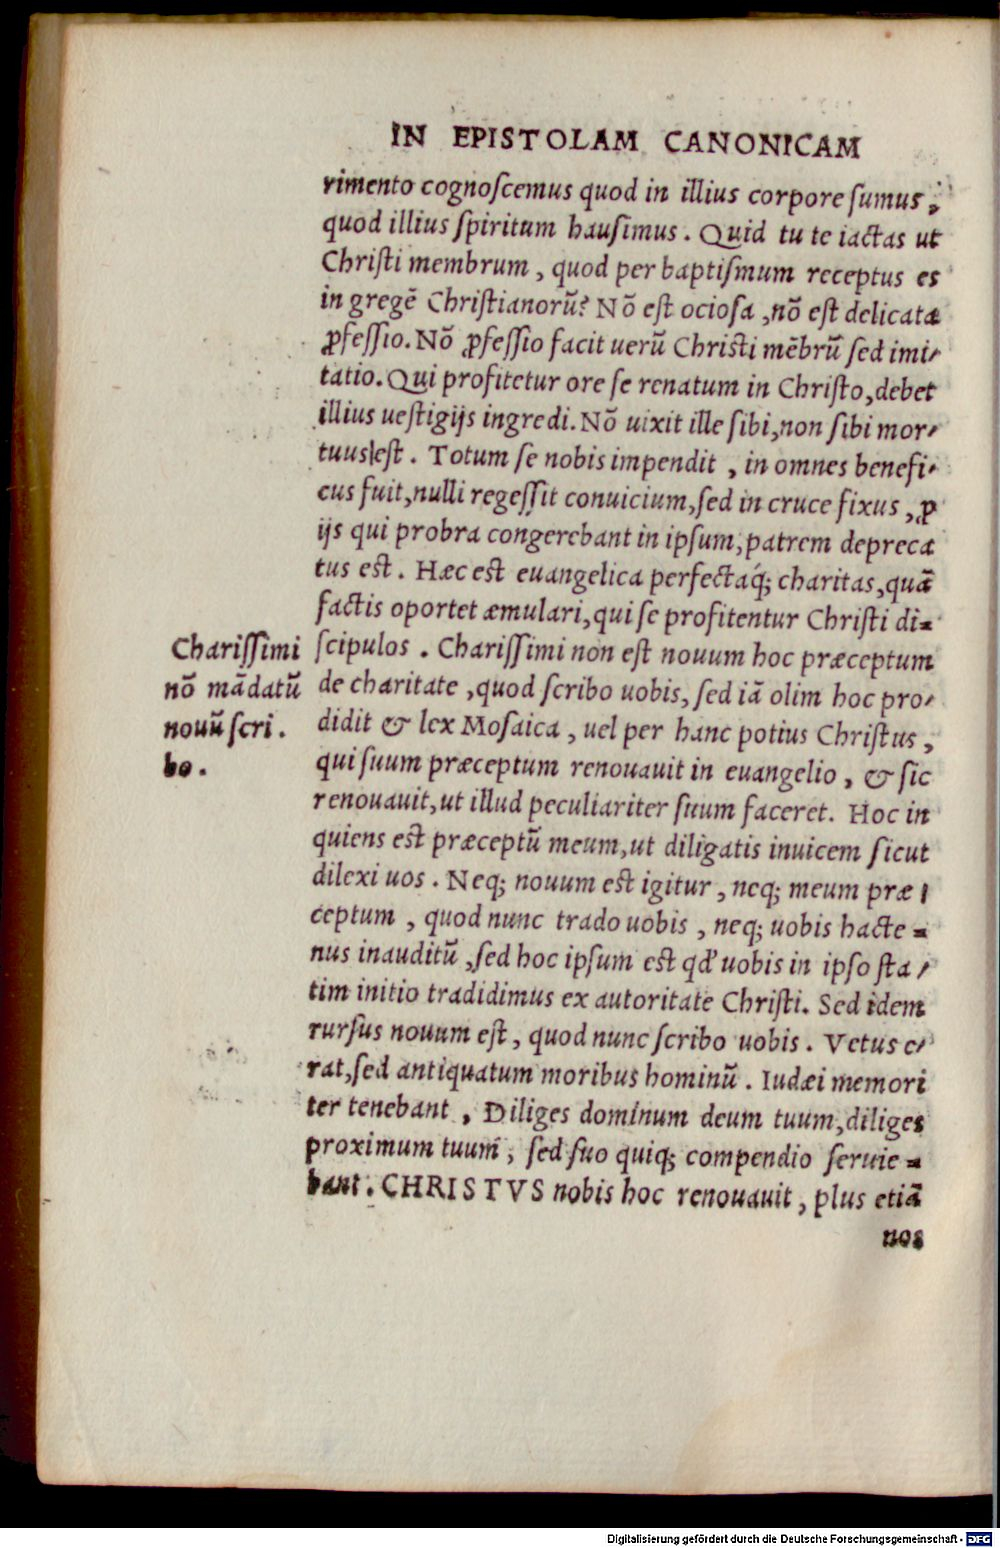 IN EPISTOLAM CANONICAM
rimento cognoſcemus quod in illius corpore ſumus,
quod illius ſpiritum hauſimus. Quid tu te iactas ut
Chriſti membrum, quod per baptiſmum receptus es
in gregē Chriſtianorū? Nō eſt ocioſa, nō eſt delicata
ꝓfeſſio. Nō ꝓfeſſio facit uerū Chriſti mēbrū ſed imi-
tatio. Qui profitetur ore ſe renatum in Chriſto, debet
illius ueſtigijs ingredi. Nō uixit ille ſibi, non ſibi mor-
tuus eſt. Totum ſe nobis impendit, in omnes benefi-
cus fuit, nulli regeſſit conuicium, ſed in cruce fixus, ꝓ
ijs qui probra congerebant in ipſum, patrem depreca
tus eſt. Hæc eſt euangelica perfectaq́; charitas, quā
factis oportet æmulari, qui ſe profitentur Chriſti di-
ſcipulos. Chariſſimi non eſt nouum hoc præceptum
de charitate, quod ſcribo uobis, ſed iā olim hoc pro-
didit & lex Moſaica, uel per hanc potius Chriſtus,
qui ſuum præceptum renouauit in euangelio, & ſic
renouauit, ut illud peculiariter ſuum faceret. Hoc in
quiens eſt præceptū meum, ut diligatis inuicem ſicut
dilexi uos. Neq; nouum eſt igitur, neq; meum præ
ceptum, quod nunc trado uobis, neq; uobis hacte-
nus inauditū, ſed hoc ipſum eſt qd' uobis in ipſo ſta-
tim initio tradidimus ex autoritate Chriſti. Sed idem
rurſus nouum eſt, quod nunc ſcribo uobis. Vetus e-
rat, ſed antiquatum moribus hominū. Iudæi memori
ter tenebant, Diliges dominum deum tuum, diliges
proximum tuum, ſed ſuo quiq; compendio ſeruie-
bant. CHRISTVS nobis hoc renouauit, plus etiā
nos
Chariſſimi
nō mādatū
nouū ſcri.
bo.
Digitalisierung gefördert durch die Deutsche Forschungsgemeinschaft - DFG